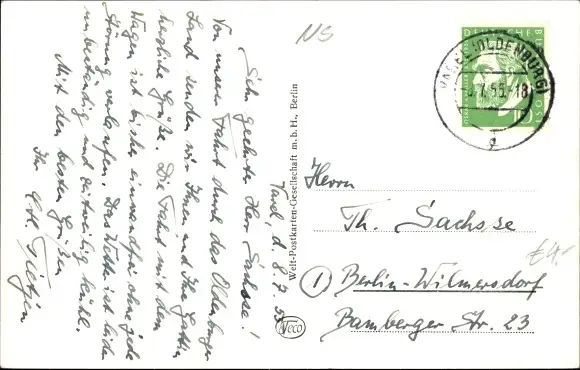 Varel, d. 8.7.55
Sehr geehrter Herr Sachsse!
Von unserer Fahrt durch das Oldenburger
Land senden wir Ihnen und Ihrer Gattin
herzliche Grüße. Die Fahrt mit dem
Wagen ist bisher einwandfrei ohne jede
Störung verlaufen. Das Wetter ist leider
unbeständig und zeitweilig kühl.
Mit den besten Grüßen
Ihr
NS
DEUTSCHE BUNDESPOST
10
VAREL (OLDENBURG)
7.55.-18
Welt-Postkarten-Gesellschaft m.b.H., Berlin
Neco
Herrn
Th. Sachsse
1 Berlin-Wilmersdorf
Bamberger Str. 23
€4,-